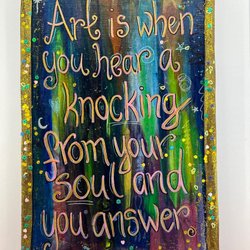 Art is when
you hear a
knocking
from your
soul and
you answer